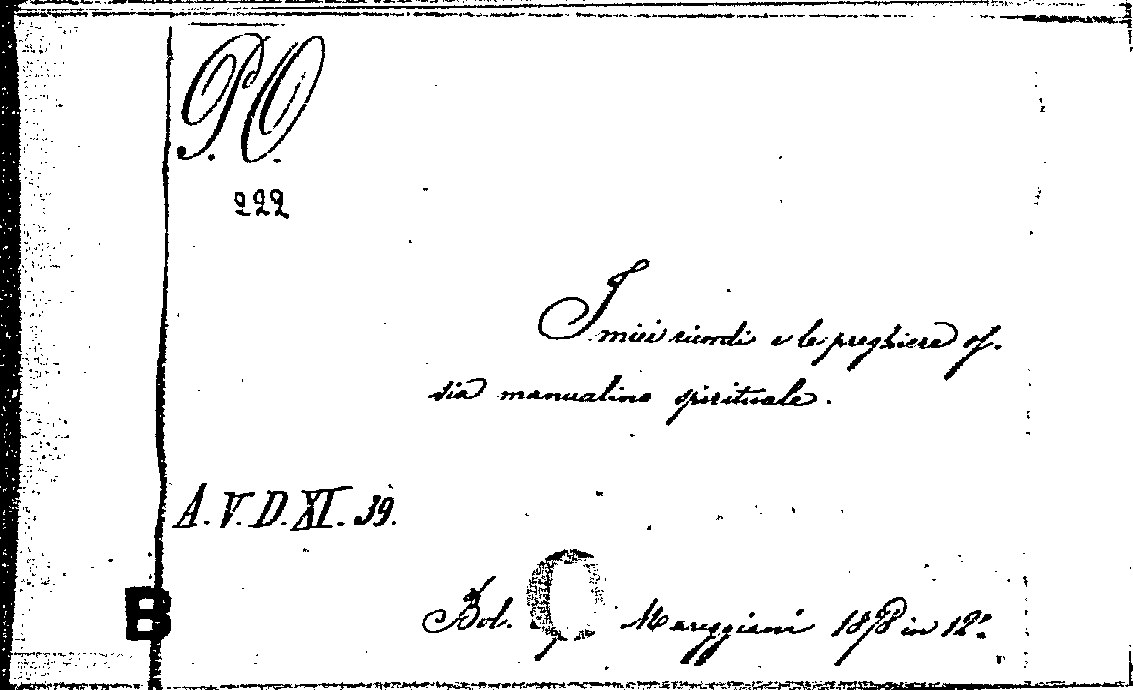 P. O.
222
I miei ricordi e le preghiere os-
sia manualino spirituale.
A. V. D. XI. 39.
B
Bol. Mareggiani 1878 in 12º.